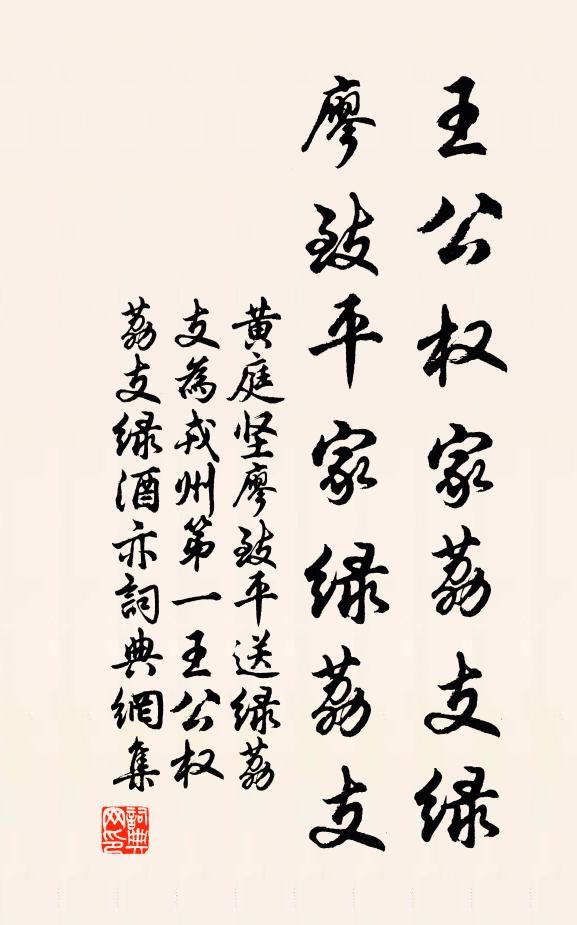 王公权家荔支绿
廖致平家绿荔支
黄庭坚廖致平送绿荔
支為戎州第一王公权
荔支绿酒亦詞典網集
詞典
网印